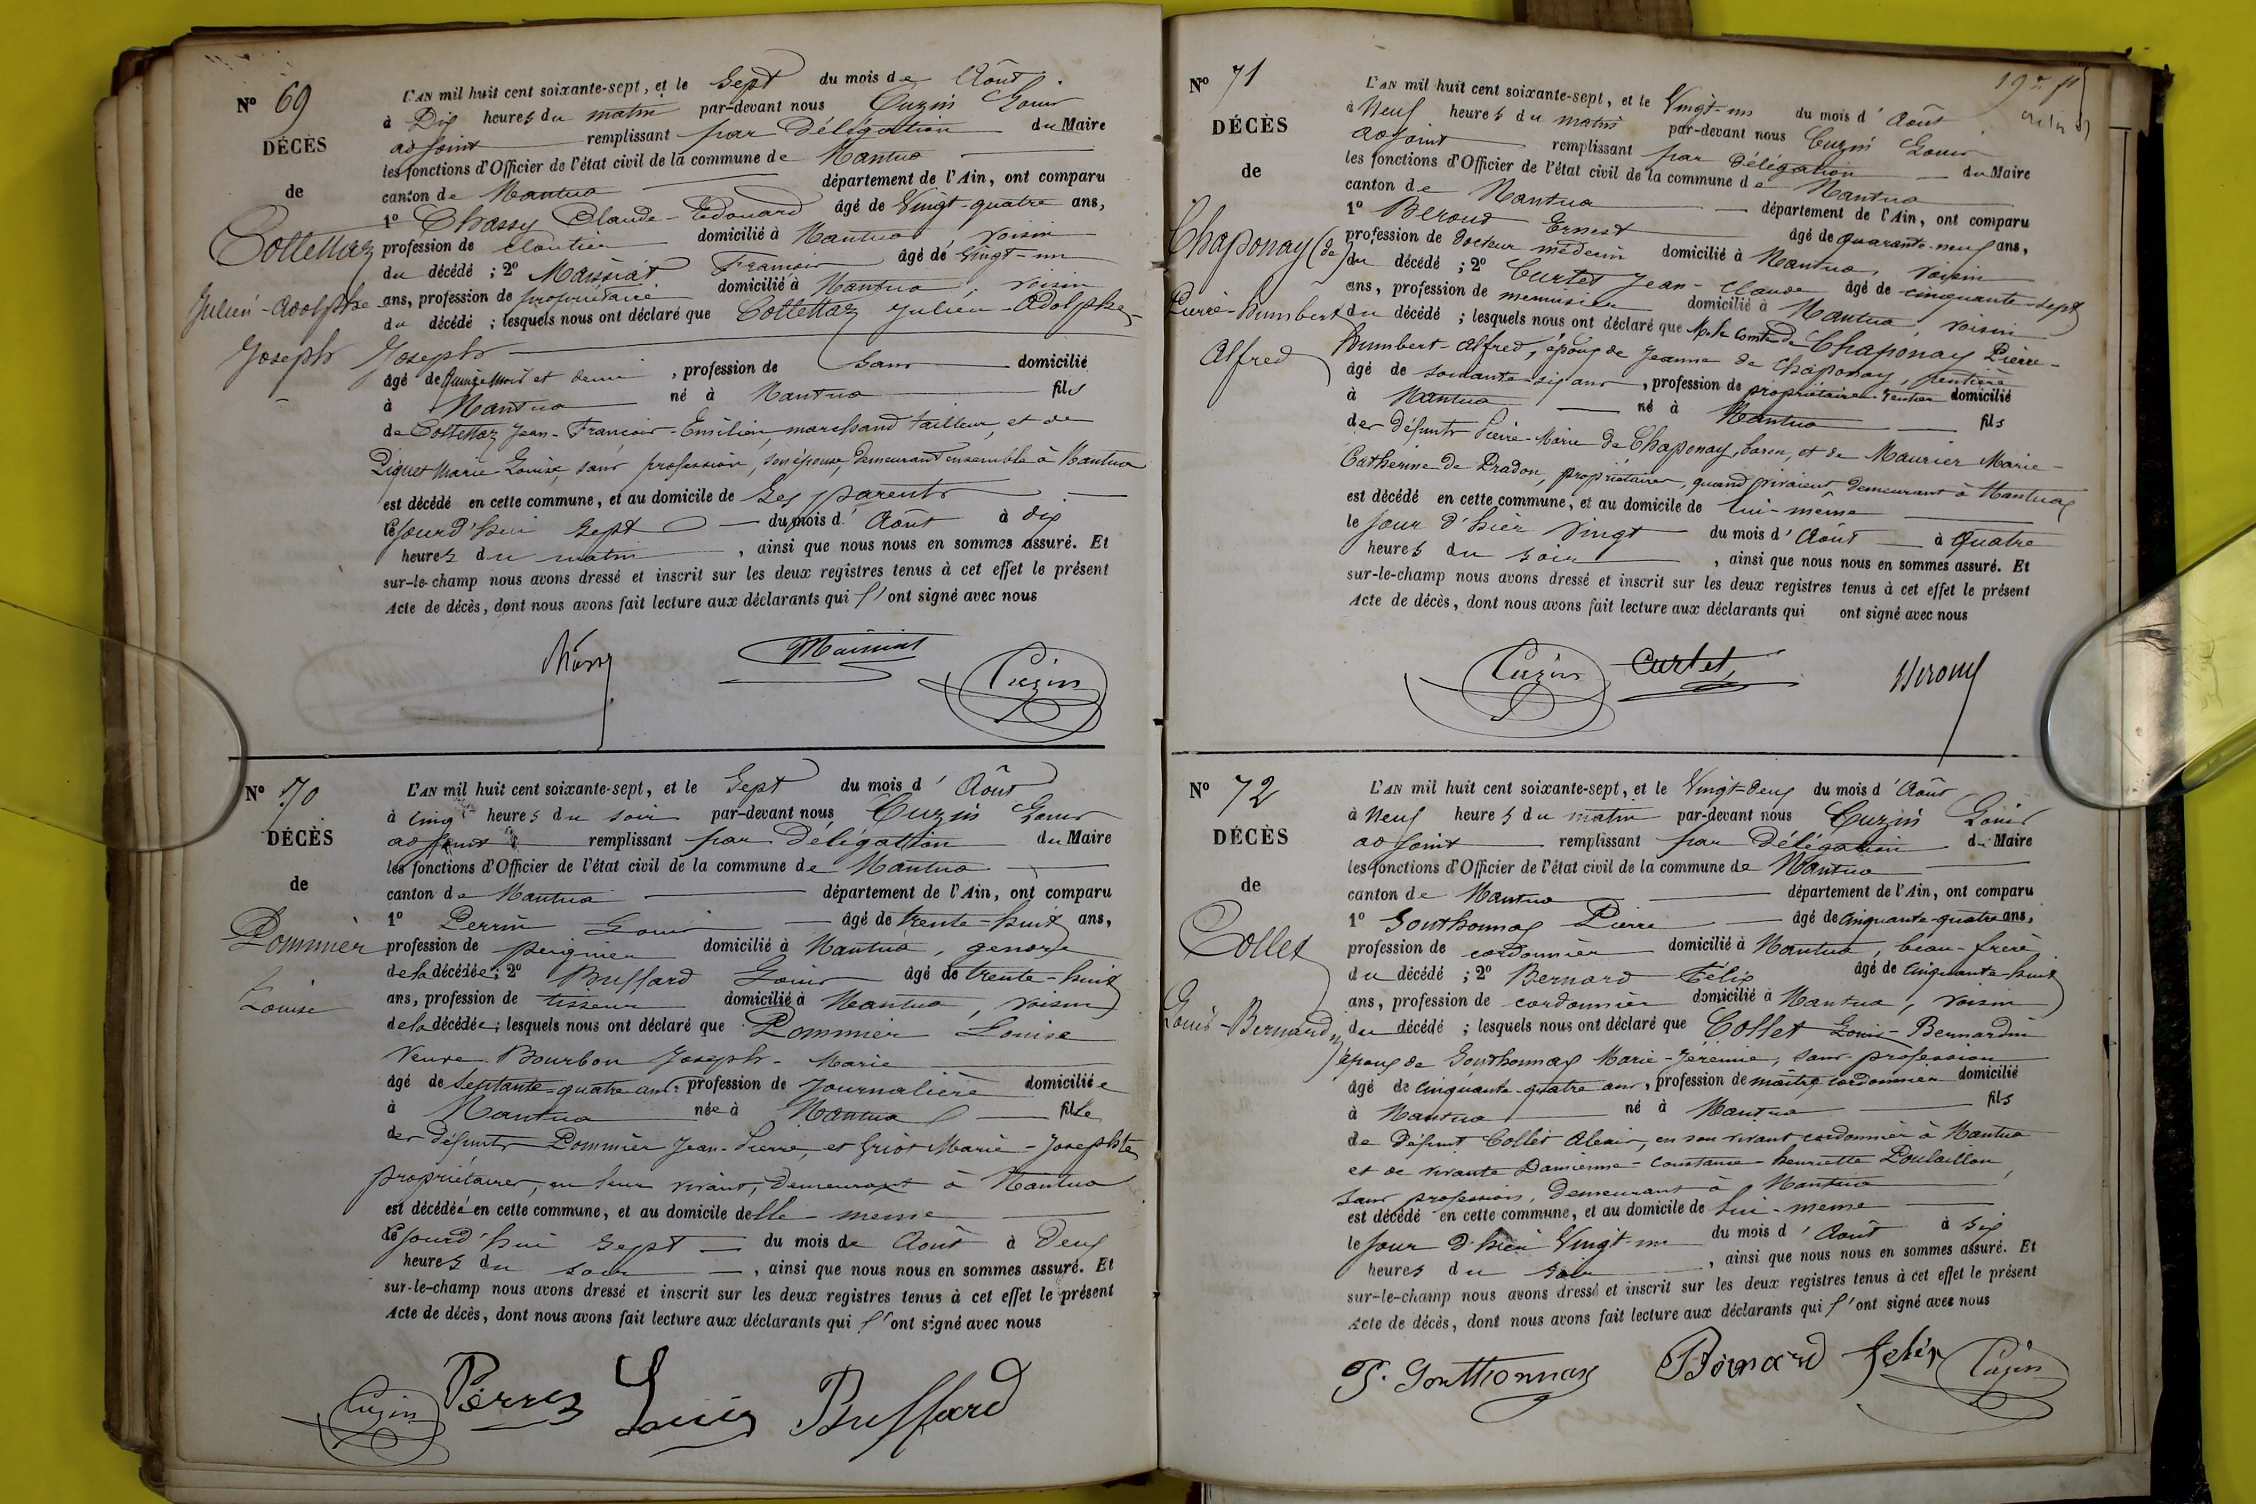 N° 69
DÉCÈS
de
Cottettaz
Julien-Adolphe
Joseph
L'AN mil huit cent soixante-sept, et le Sept du mois de Août
à Dix heures du matin par-devant nous Cuzin Louis
adjoint remplissant par délégation du Maire
les fonctions d'Officier de l'état civil de la commune de Nantua
canton de Nantua département de l'Ain, ont comparu
1° Chassy Claude-Edouard âgé de Vingt-quatre ans,
profession de cloutier domicilié à Nantua, voisin
du décédé ; 2° Maissiat François âgé de Vingt-un
ans, profession de propriétaire domicilié à Nantua, voisin
du décédé ; lesquels nous ont déclaré que Cottettaz Julien-Adolphe-
Joseph
âgé de Quinze mois et demi, profession de sans domicilié
à Nantua né à Nantua fils
de Cottettaz Jean-François-Emilien, marchand tailleur, et de
Piquet Marie-Louise, sans profession, son épouse, demeurant ensemble à Nantua
est décédé en cette commune, et au domicile de ses parents
cejourd'hui sept du mois d'Août à dix
heures du matin, ainsi que nous nous en sommes assuré. Et
sur-le-champ nous avons dressé et inscrit sur les deux registres tenus à cet effet le présent
Acte de décès, dont nous avons fait lecture aux déclarants qui l'ont signé avec nous
Maissiat
Cuzin
N° 70
DÉCÈS
de
Pommier
Louise
L'AN mil huit cent soixante-sept, et le Sept du mois d'Août
à cinq heures du soir par-devant nous Cuzin Louis
adjoint remplissant par Délégation du Maire
les fonctions d'Officier de l'état civil de la commune de Nantua
canton de Nantua département de l'Ain, ont comparu
1° Perrin Louis âgé de trente-huit ans,
profession de peignier domicilié à Nantua, gendre
de la décédée ; 2° Buffard Louis âgé de trente-huit
ans, profession de tisseur domicilié à Nantua, voisin
de la décédée ; lesquels nous ont déclaré que Pommier Louise
veuve Bourbon Joseph-Marie
âgé de septante-quatre ans, profession de journalière domiciliée
à Nantua née à Nantua fille
des défunts Pommier Jean-Pierre, et Griot Marie-Josephte
propriétaires, en leur vivant, demeurant à Nantua
est décédée en cette commune, et au domicile d'elle-même
cejourd'hui sept du mois de Août à Deux
heures du soir, ainsi que nous nous en sommes assuré. Et
sur-le-champ nous avons dressé et inscrit sur les deux registres tenus à cet effet le présent
Acte de décès, dont nous avons fait lecture aux déclarants qui l'ont signé avec nous
Cuzin Perrin Louis Buffard
N° 71
DÉCÈS
de
Chaponay (de)
Pierre-Humbert
Alfred
L'AN mil huit cent soixante-sept, et le Vingt-un du mois d'Août
à Neuf heures du matin par-devant nous Cuzin Louis
adjoint remplissant par délégation du Maire
les fonctions d'Officier de l'état civil de la commune de Nantua
canton de Nantua département de l'Ain, ont comparu
1° Beroud Ernest âgé de quarante-neuf ans,
profession de docteur médecin domicilié à Nantua, voisin
du décédé ; 2° Curtet Jean-Claude âgé de cinquante-sept
ans, profession de menuisier domicilié à Nantua, voisin
du décédé ; lesquels nous ont déclaré que Mr le Comte de Chaponay Pierre-
Humbert-Alfred, époux de Jeanne de Chaponay, rentière
âgé de soixante-six ans, profession de propriétaire-rentier domicilié
à Nantua né à Nantua fils
des défunts Pierre-Marie de Chaponay, baron, et de Maurier Marie-
Catherine de Pradon, propriétaires, quand vivaient demeurant à Nantua
est décédé en cette commune, et au domicile de lui-même
le jour d'hier vingt du mois d'Août à Quatre
heures du soir, ainsi que nous nous en sommes assuré. Et
sur-le-champ nous avons dressé et inscrit sur les deux registres tenus à cet effet le présent
Acte de décès, dont nous avons fait lecture aux déclarants qui ont signé avec nous
Cuzin Curtet Beroud
N° 72
DÉCÈS
de
Collet
Louis-Bernardin
L'AN mil huit cent soixante-sept, et le Vingt-deux du mois d'Août
à Neuf heures du matin par-devant nous Cuzin Louis
adjoint remplissant par Délégation du Maire
les fonctions d'Officier de l'état civil de la commune de Nantua
canton de Nantua département de l'Ain, ont comparu
1° Gouthonnax Pierre âgé de cinquante-quatre ans,
profession de cordonnier domicilié à Nantua, beau-frère
du décédé ; 2° Bernard Félix âgé de cinquante-huit
ans, profession de cordonnier domicilié à Nantua, voisin
du décédé ; lesquels nous ont déclaré que Collet Louis-Bernardin
époux de Gouthonnax Marie-Jérémie, sans profession
âgé de cinquante-quatre ans, profession de maître cordonnier domicilié
à Nantua né à Nantua fils
de défunt Collet Alexis, en son vivant cordonnier à Nantua
et de vivante Damienne-Constance-Henriette Poulaillon,
sans profession, demeurant à Nantua
est décédé en cette commune, et au domicile de lui-même
le jour d'hier Vingt-un du mois d'Août à six
heures du soir, ainsi que nous nous en sommes assuré. Et
sur-le-champ nous avons dressé et inscrit sur les deux registres tenus à cet effet le présent
Acte de décès, dont nous avons fait lecture aux déclarants qui l'ont signé avec nous
P. Gouthonnax Bernard félix Cuzin